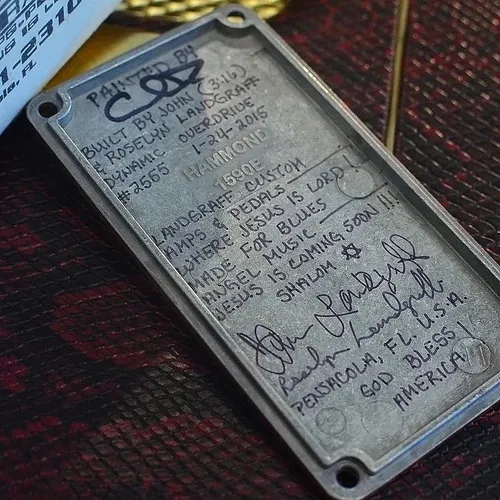 PAINTED BY
BUILT BY JOHN (3:16)
& ROSELYN LANDGRAFF
DYNAMIC OVERDRIVE
#2555 1-24-2015
HAMMOND
1590B
LANDGRAFF CUSTOM
AMPS & PEDALS
WHERE JESUS IS LORD!
MADE FOR BLUES
ANGEL MUSIC
JESUS IS COMING SOON!!!
SHALOM ✡
John Landgraff
Roselyn Landgraff
PENSACOLA, FL. U.S.A.
GOD BLESS
AMERICA!
, FL